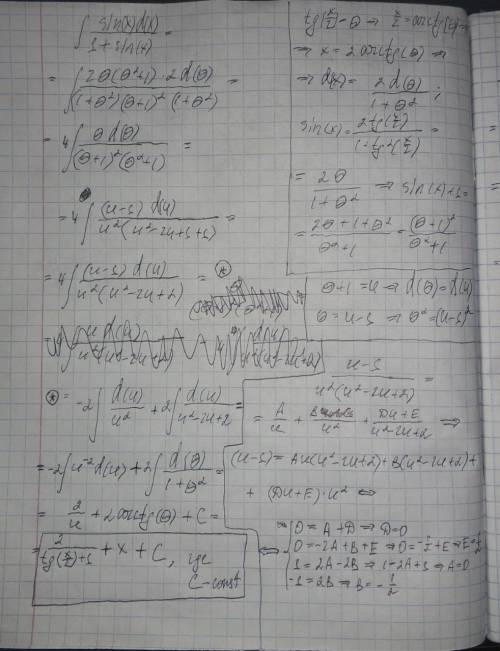 ∫ sin(x)d(x) / 1+sin(x) =
= ∫ 2θ(θ²+1)·2d(θ) / (1+θ²)(θ+1)²(1+θ²) =
= 4∫ θd(θ) / (θ+1)²(θ²+1) =
= 4∫ (u-1)d(u) / u²(u²-2u+1+1) =
= 4∫ (u-1)d(u) / u²(u²-2u+2) = (*)
(*) = -2∫ d(u)/u² + 2∫ d(u)/u²-2u+2 =
= -2∫ u⁻²d(u) + 2∫ d(θ)/1+θ² =
= 2/u + 2arctg(θ) + C =
= 2/tg(x/2)+1 + x + C, где
C-const
tg(x/2) = θ ⇒ x/2 = arctg(θ) ⇒
⇒ x = 2arctg(θ) ⇒
⇒ d(x) = 2d(θ)/1+θ² ;
sin(x) = 2tg(x/2)/1+tg²(x/2) =
= 2θ/1+θ² ⇒ sin(x)+1 =
= 2θ+1+θ²/θ²+1 = (θ+1)²/θ²+1
θ+1 = u ⇒ d(θ) = d(u)
θ = u-1 ⇒ θ² = (u-1)²
u-1 / u²(u²-2u+2) =
= A/u + B/u² + Du+E/u²-2u+2 ⇒
(u-1) = Au(u²-2u+2) + B(u²-2u+2) +
+ (Du+E)·u² ⇔
⇔ { 0 = A+D ⇒ D=0
0 = -2A+B+E ⇒ 0 = -1/2+E ⇒ E=1/2
1 = 2A-2B ⇒ 1 = 2A+1 ⇒ A=0
-1 = 2B ⇒ B = -1/2